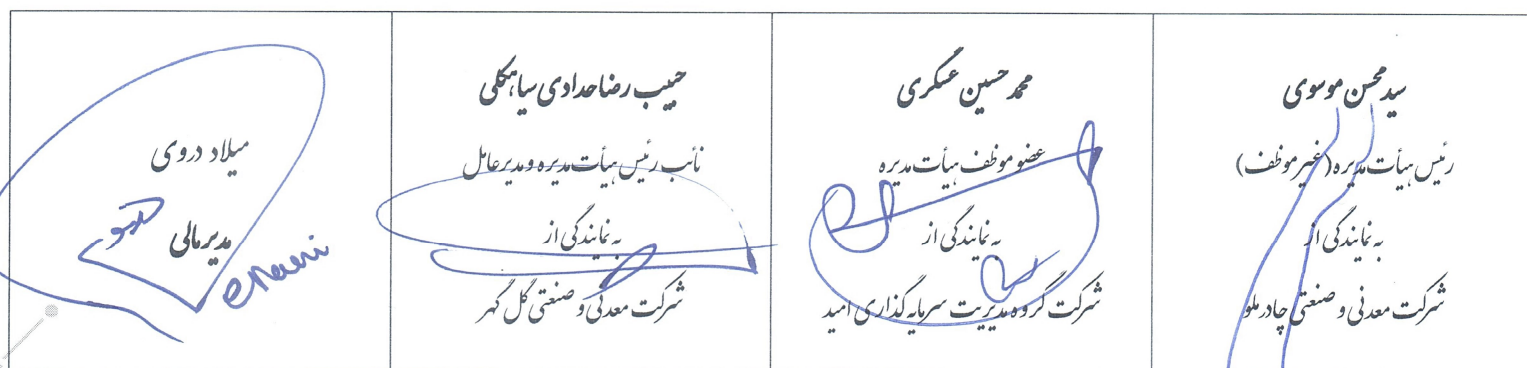 سید محسن موسوی
رئیس هیأت مدیره (غیر موظف)
به نمایندگی از
شرکت معدنی و صنعتی چادرملو
محمد حسین عسکری
عضو موظف هیأت مدیره
به نمایندگی از
شرکت گروه مدیریت سرمایه گذاری امید
حبیب رضا حدادی سیاهکلی
نائب رئیس هیأت مدیره و مدیرعامل
به نمایندگی از
شرکت معدنی و صنعتی گل گهر
میلاد دروی
مدیر مالی